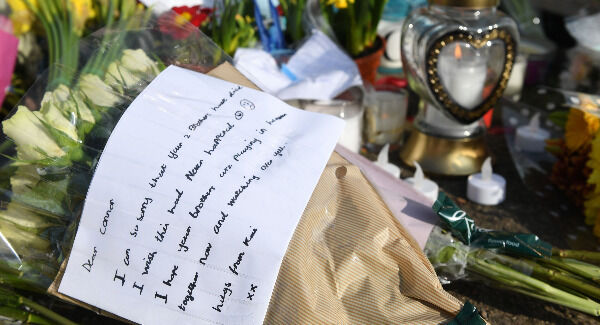 Dear Connor
I am so sorry that your 2 Brothers have died
I wish this had Never happened ☹
I hope your brothers are playing in heaven
together now and watching over you.
hugs from Kai
xx